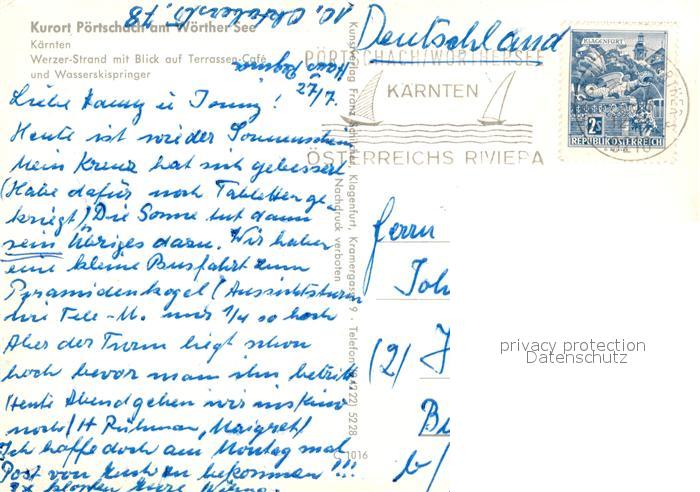 Kurort Pörtschach am Wörther See
Kärnten
Werzer-Strand mit Blick auf Terrassen-Café
und Wasserskispringer
27/7.
Liebe Fanny u Jonny!
Heute ist wieder Sonnenschein
Mein Kreuz hat sich gebessert
(Habe dafür noch Tabletten ge-
kriegt) Die Sonne tut dann
sein Übriges dazu. Wir haben
eine kleine Busfahrt zum
Pyramidenkogel (Aussichtsturm
wie Tele-M. nur 1/4 so hoch
Aber der Turm liegt schon
hoch bevor man ihn betritt
Heute Abend gehen wir ins Kino
noch (H Rühman, Maigret)
Ich hoffe doch am Montag mal
Post von Euch zu bekommen!!!
Kunstverlag Franz Schilcher, Klagenfurt, Kramergasse 9 - Telefon (0 42 22) 52 28
Nachdruck verboten
C 1016
Deutschland
PÖRTSCHACH/WÖRTHERSEE
KÄRNTEN
ÖSTERREICHS RIVIERA
KLAGENFURT
2S
REPUBLIK ÖSTERREICH
Herrn
Joh
(2)
b/
privacy protection
Datenschutz